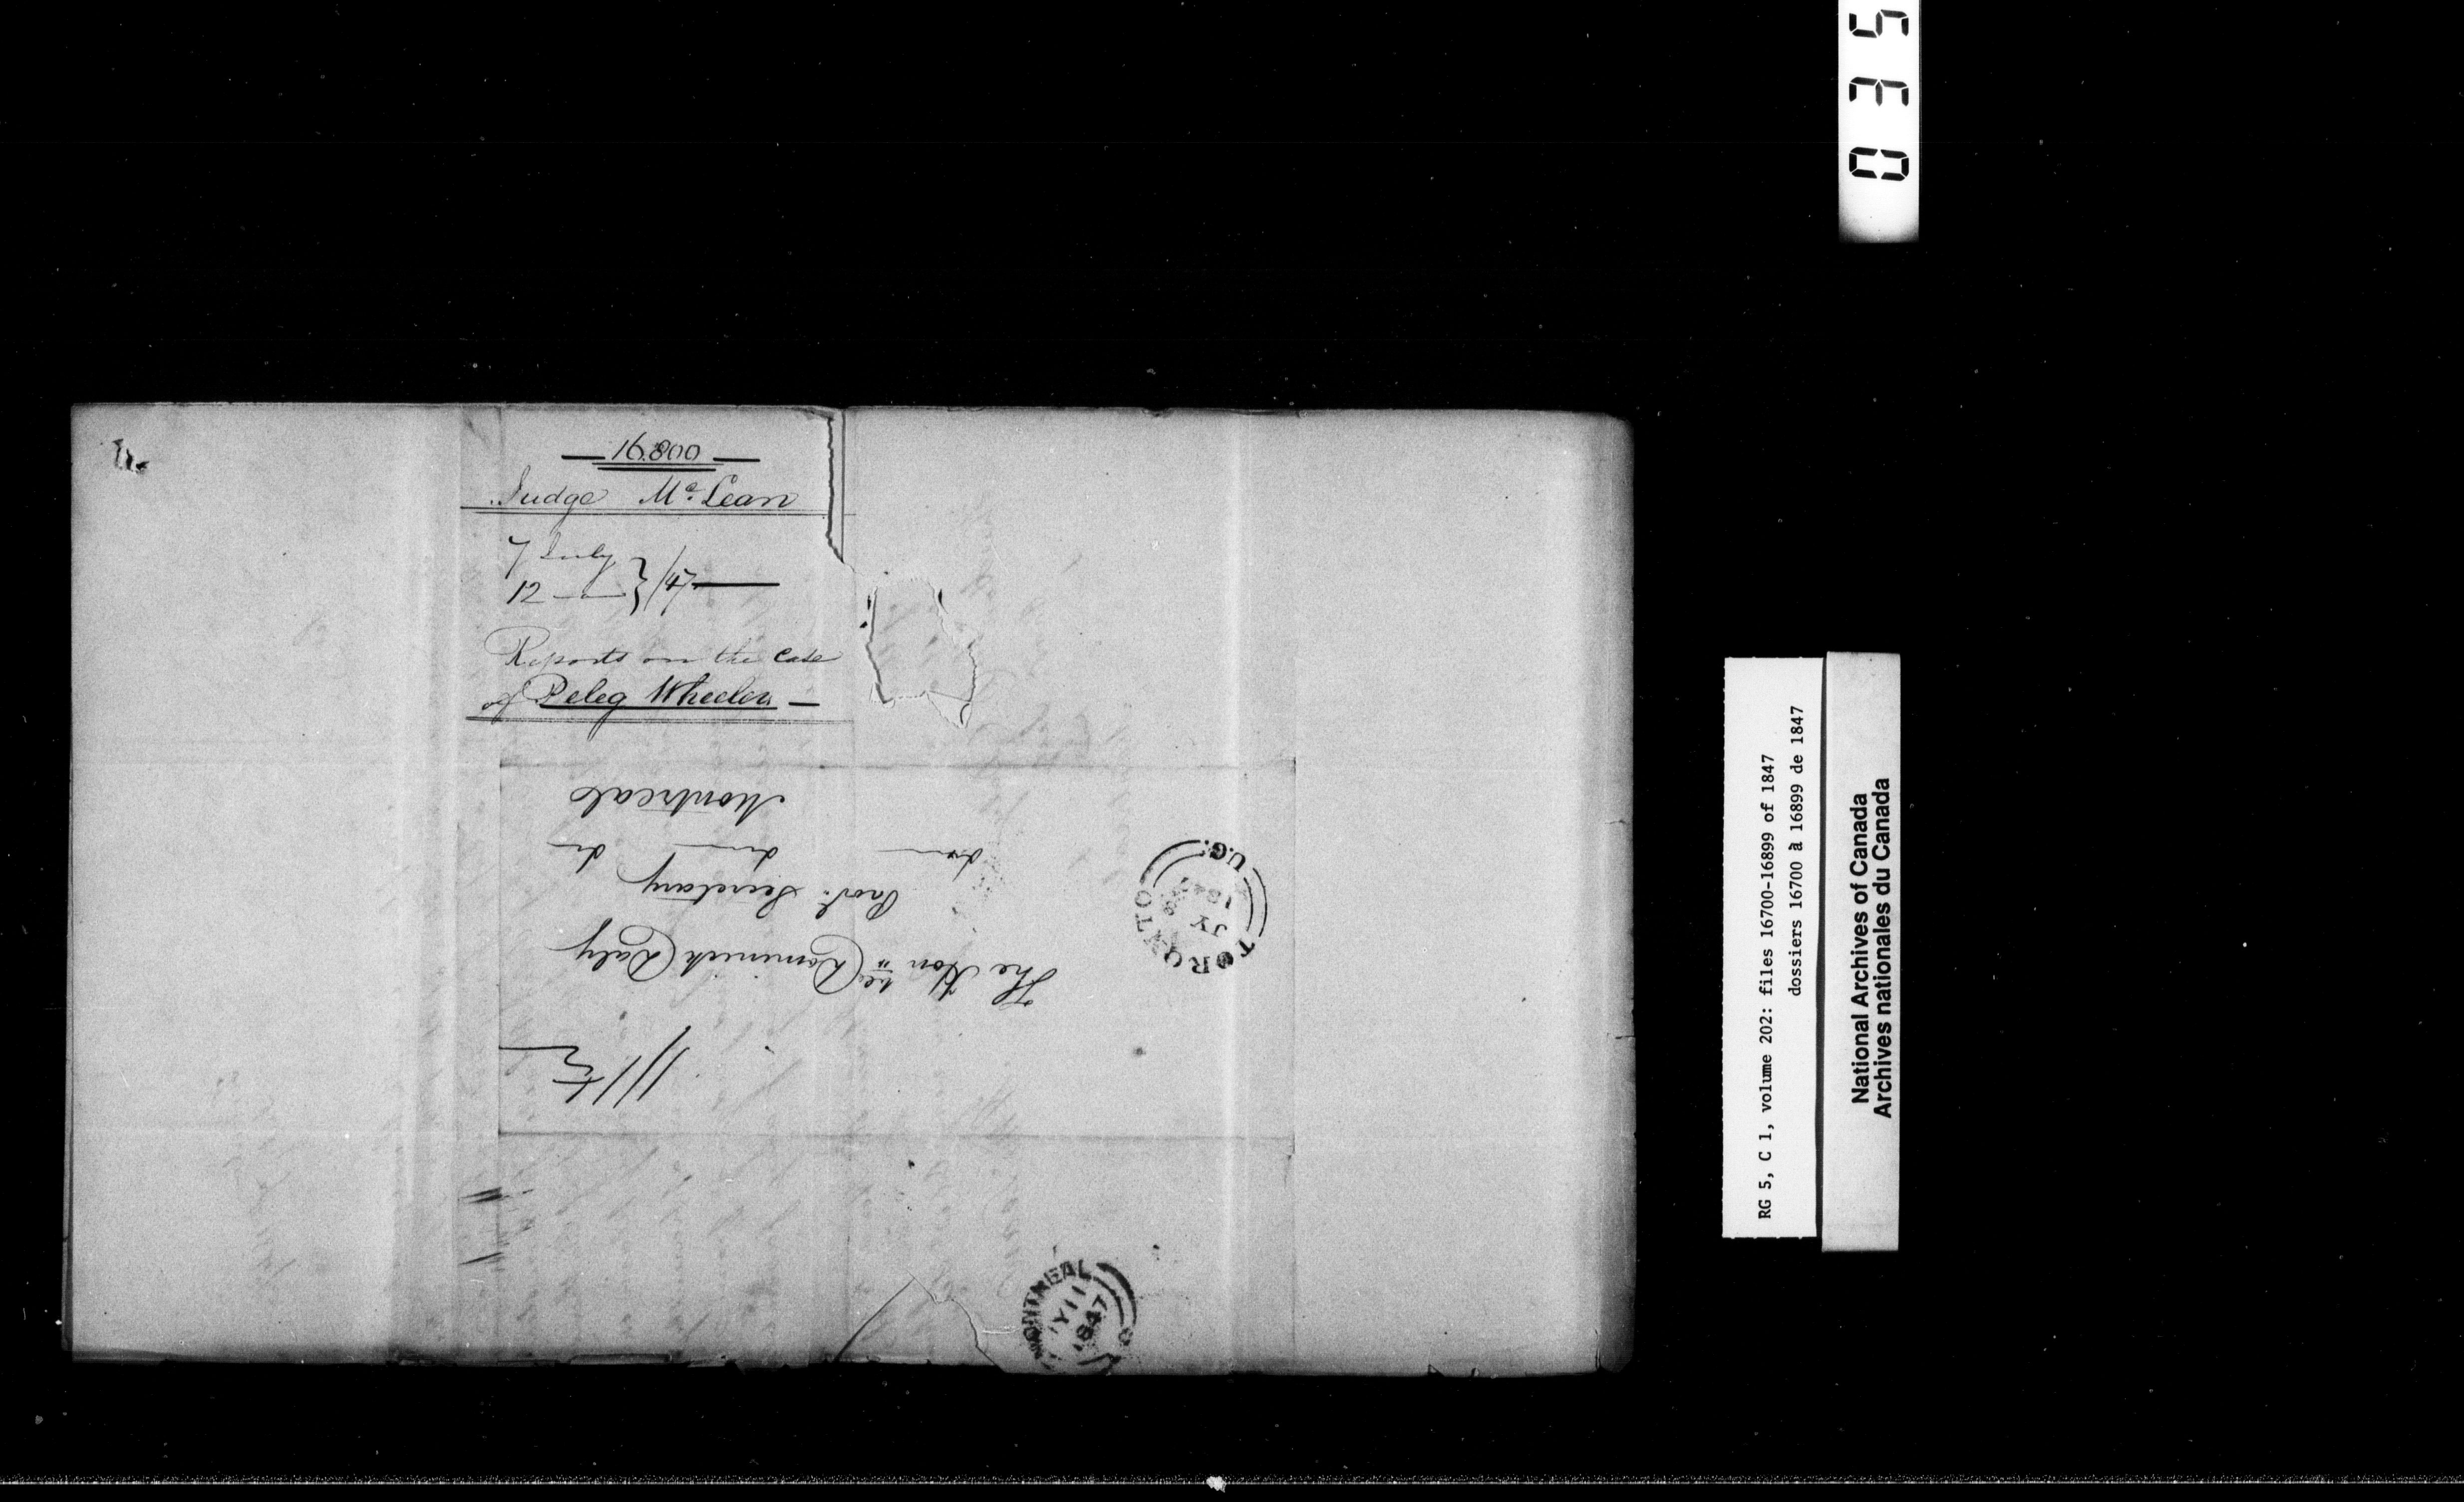 16.800
Judge Mc. Lean
7 July
12 — } /47
Reports on the Case
of Peleg Wheeler
The Honble Dominick Daly
Prov. Secretary &c
&c &c
Montreal
TORONTO
JY
184
U.C.
MONTREAL
Y 11
1847
0 3 5
RG 5, C 1, volume 202: files 16700-16899 of 1847
dossiers 16700 à 16899 de 1847
National Archives of Canada
Archives nationales du Canada